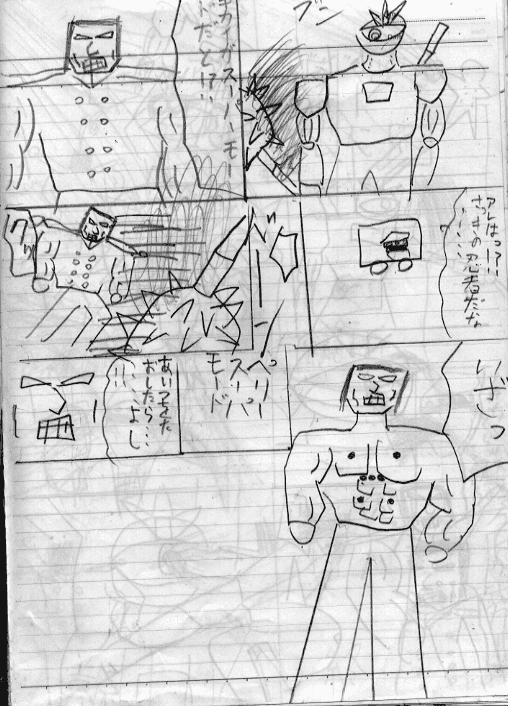 ブン
チカイがスーパーモー
ドだと!?!!
アレはっ!?!!
さっきの忍者だな
…………
グッ
ベリー
スーパー
モード
あいつをた
おしたら…
……よし
!!
いざっ